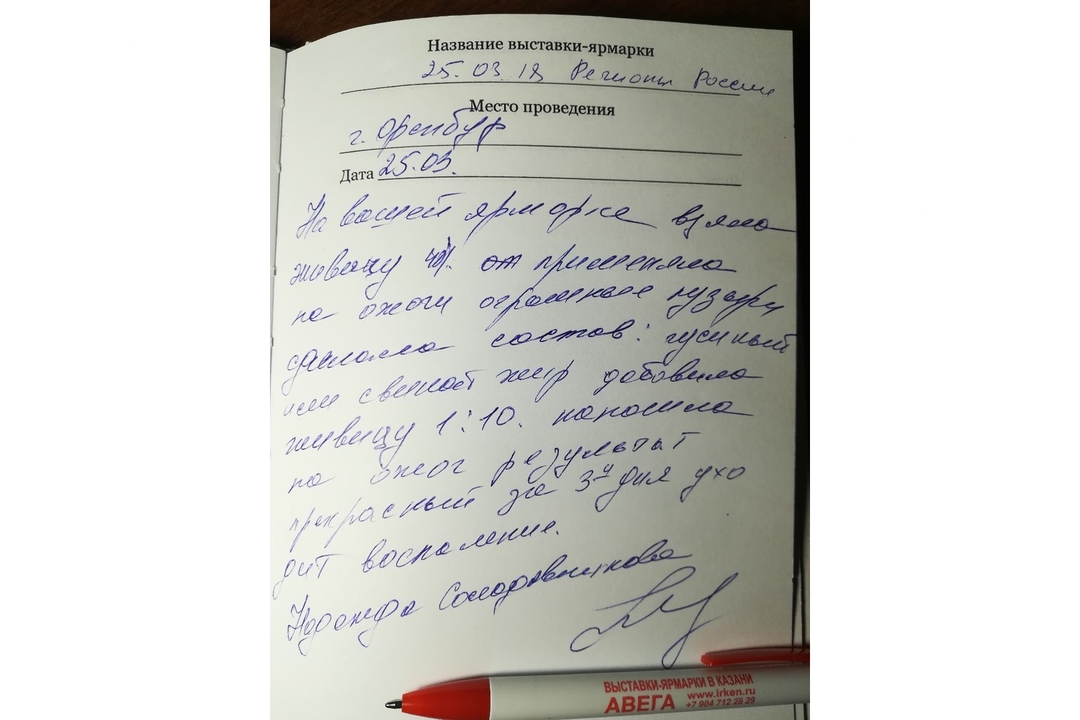 Название выставки-ярмарки
25.03.18 Регионы России
Место проведения
г. Оренбур
Дата 25.03.
На вашей ярмарке взяла
живицу от применяла
на ожоги огромные пузыри
сделала состав: гусиный
или свиной жир добавила
живицу 1:10. наносила
на ожог результат
прекрасный за 3й дня ухо
дит воспаление.
Надежда Солодовникова
ВЫСТАВКИ-ЯРМАРКИ В КАЗАНИ
АВЕГА www.irken.ru
+7 904 712 28 29